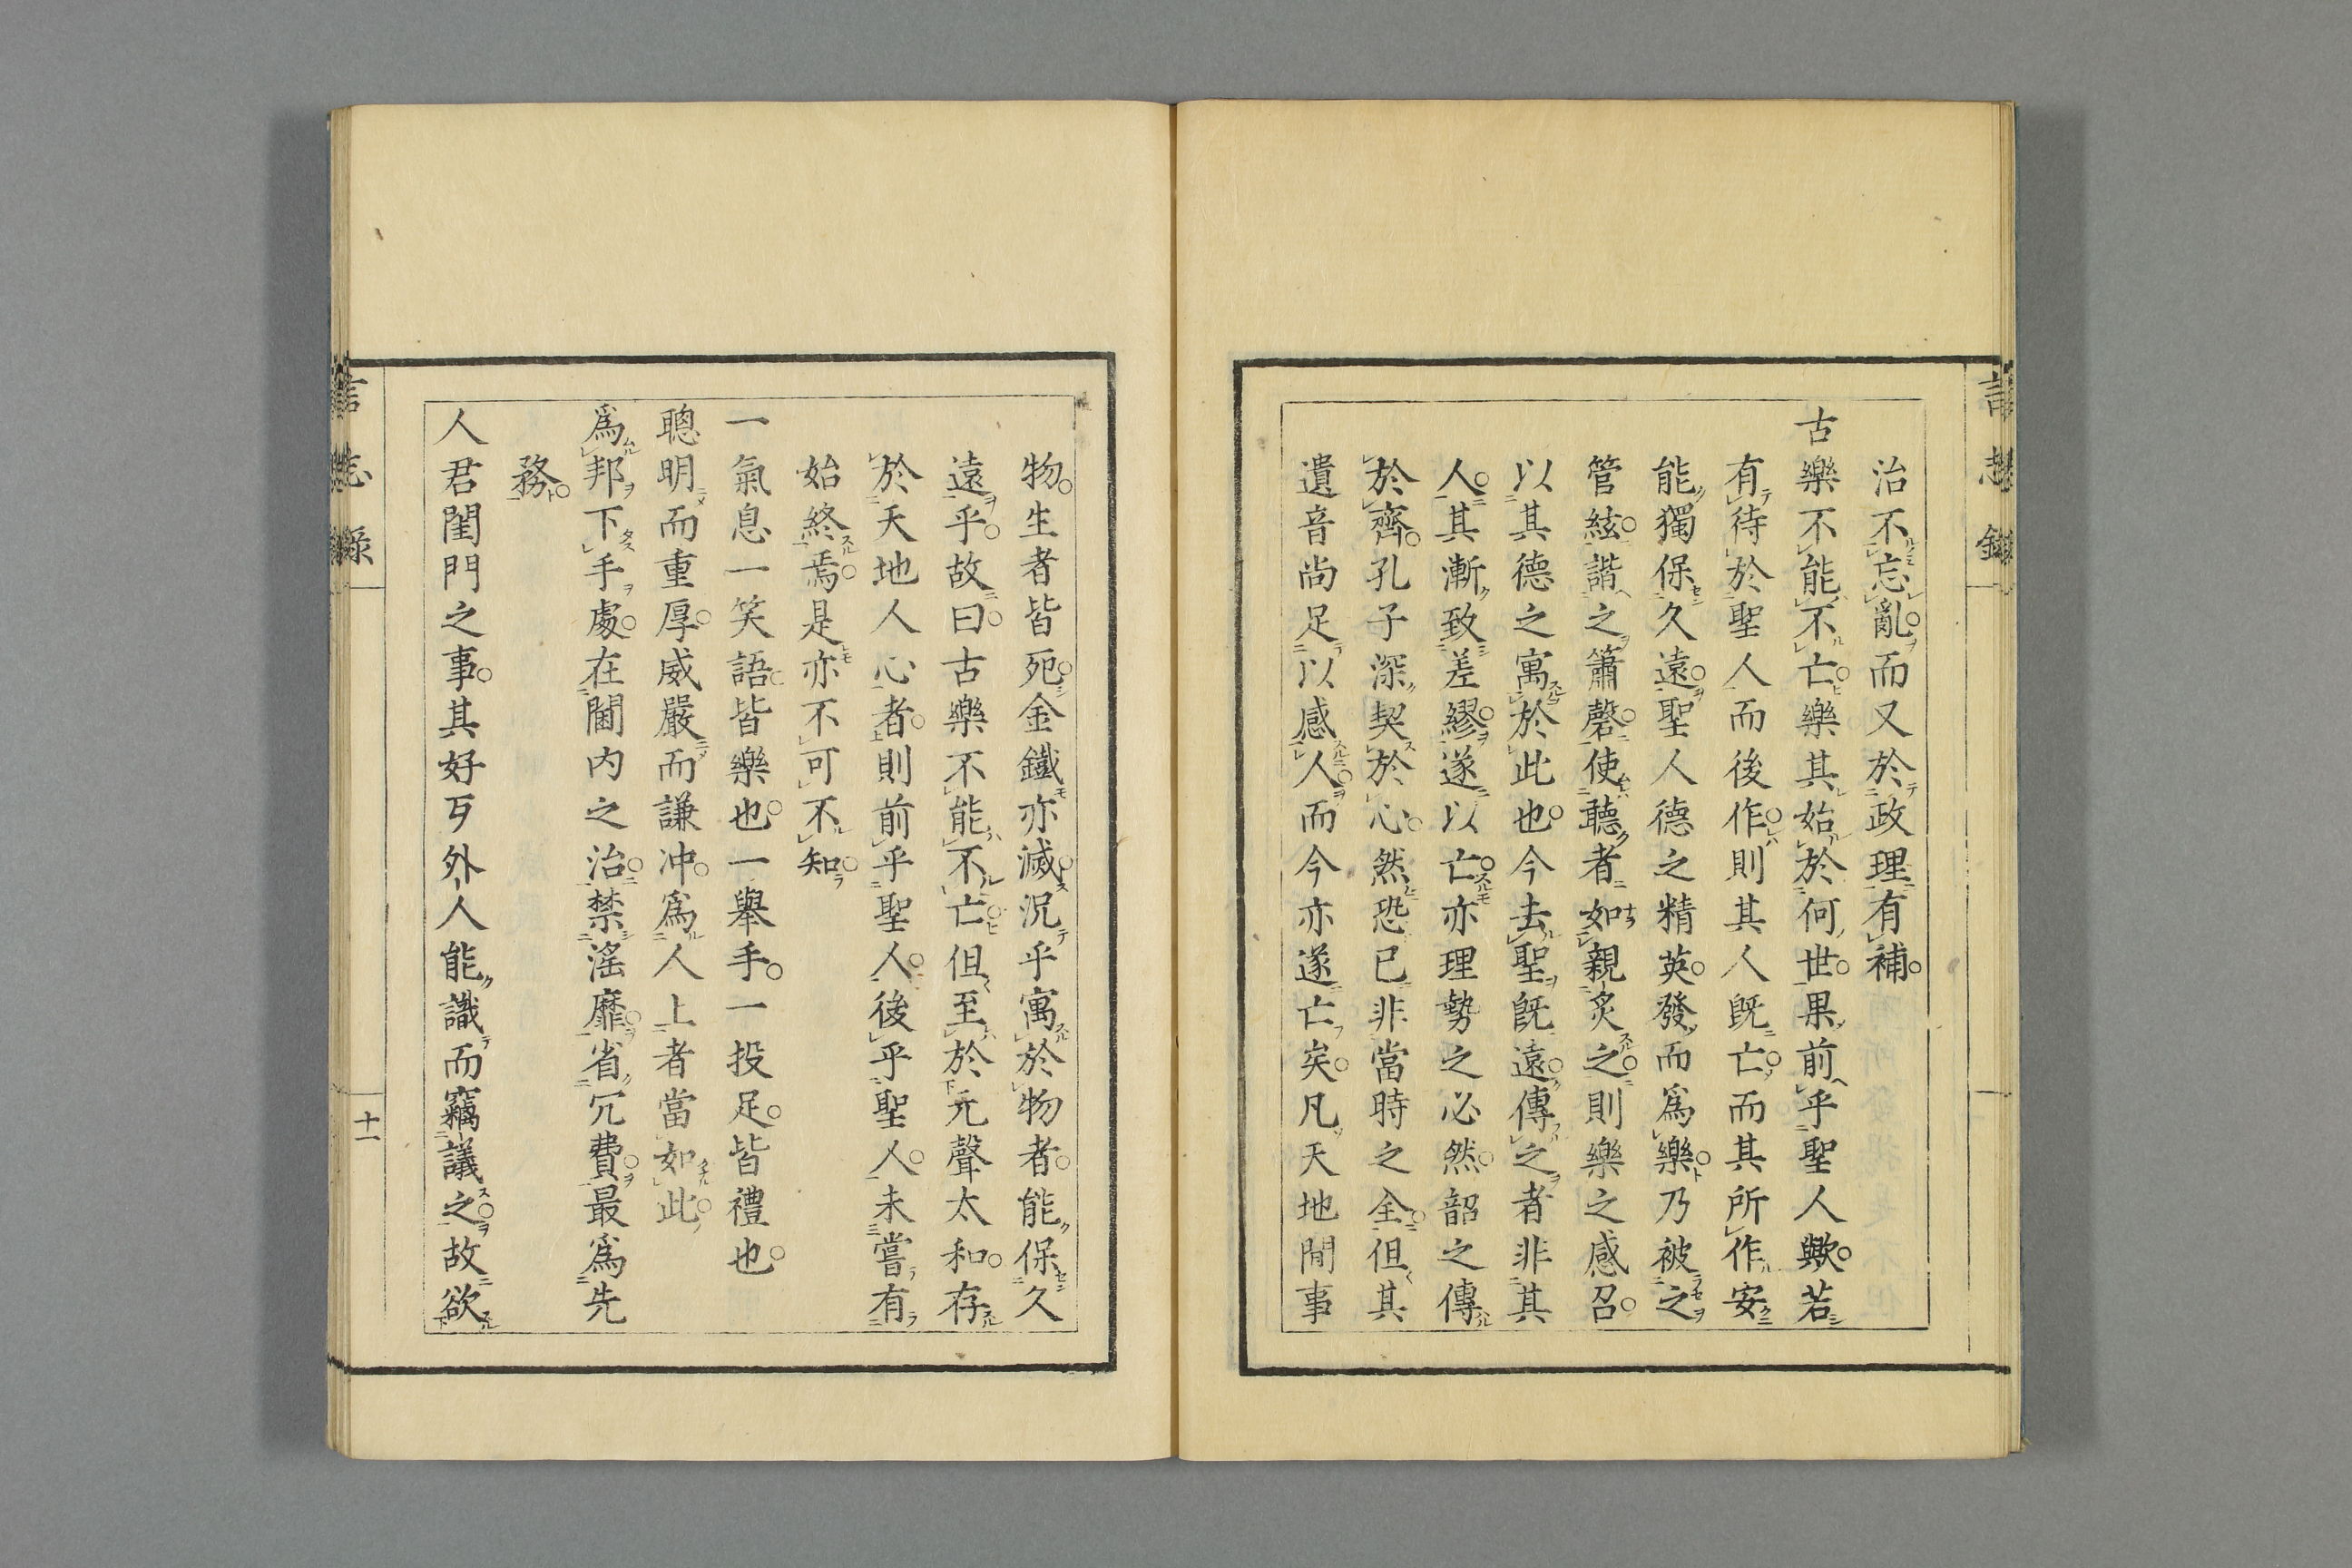 治不忘亂。而又於政理有補。
古樂不能不亡。樂其始於何世。果前乎聖人歟。若
有待於聖人而後作。則其人既亡。而其所作安
能獨保久遠。聖人德之精英。發而爲樂。乃被之
管絃。諧之簫磬。使聽者如親炙之。則樂之感召。
以其德之寓於此也。今去聖既遠。傳之者非其
人。其漸致差繆。遂以亡。亦理勢之必然。韶之傳
於齊。孔子深契於心。然恐已非當時之全。但其
遺音尚足以感人。而今亦遂亡矣。凡天地間事
物。生者皆死。金鐵亦滅。況乎寓於物者。能保久
遠乎。故曰。古樂不能不亡。但至於元聲太和。存
於天地人心者。則前乎聖人。後乎聖人。未嘗有
始終焉。是亦不可不知。
一氣息一笑語皆樂也。一舉手。一投足。皆禮也。
聰明而重厚。威嚴而謙沖。爲人上者當如此。
爲邦下手處。在閫内之治。禁淫靡。省冗費。最爲先
務。
人君閨門之事。其好歹外人能識而竊議之。故欲
言志錄
十一